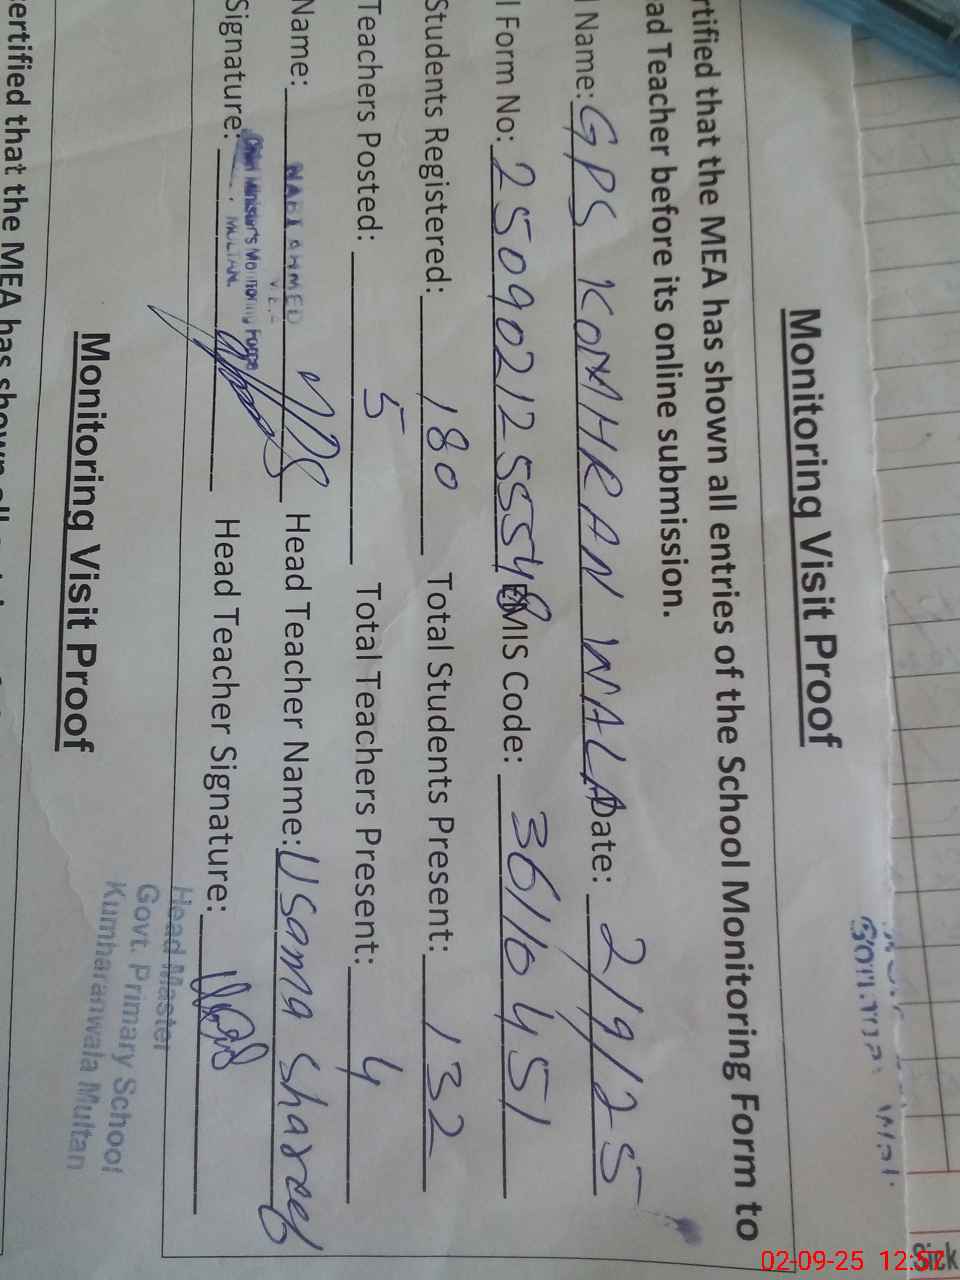 Monitoring Visit Proof
rtified that the MEA has shown all entries of the School Monitoring Form to
ad Teacher before its online submission.
l Name: GPS KOMHRAN WALA Date: 2/9/25
l Form No: 2509021255548 EMIS Code: 36110451
Students Registered: 180 Total Students Present: 132
Teachers Posted: 5 Total Teachers Present: 4
Name: NABI AHMED Head Teacher Name: Usama Shareef
Chief Minister's Monitoring Force
MULTAN
Signature: Head Teacher Signature:
Head Master
Govt. Primary School
Kumharanwala Multan
Monitoring Visit Proof
ertified that the MEA has shown all
Sick
02-09-25 12:57